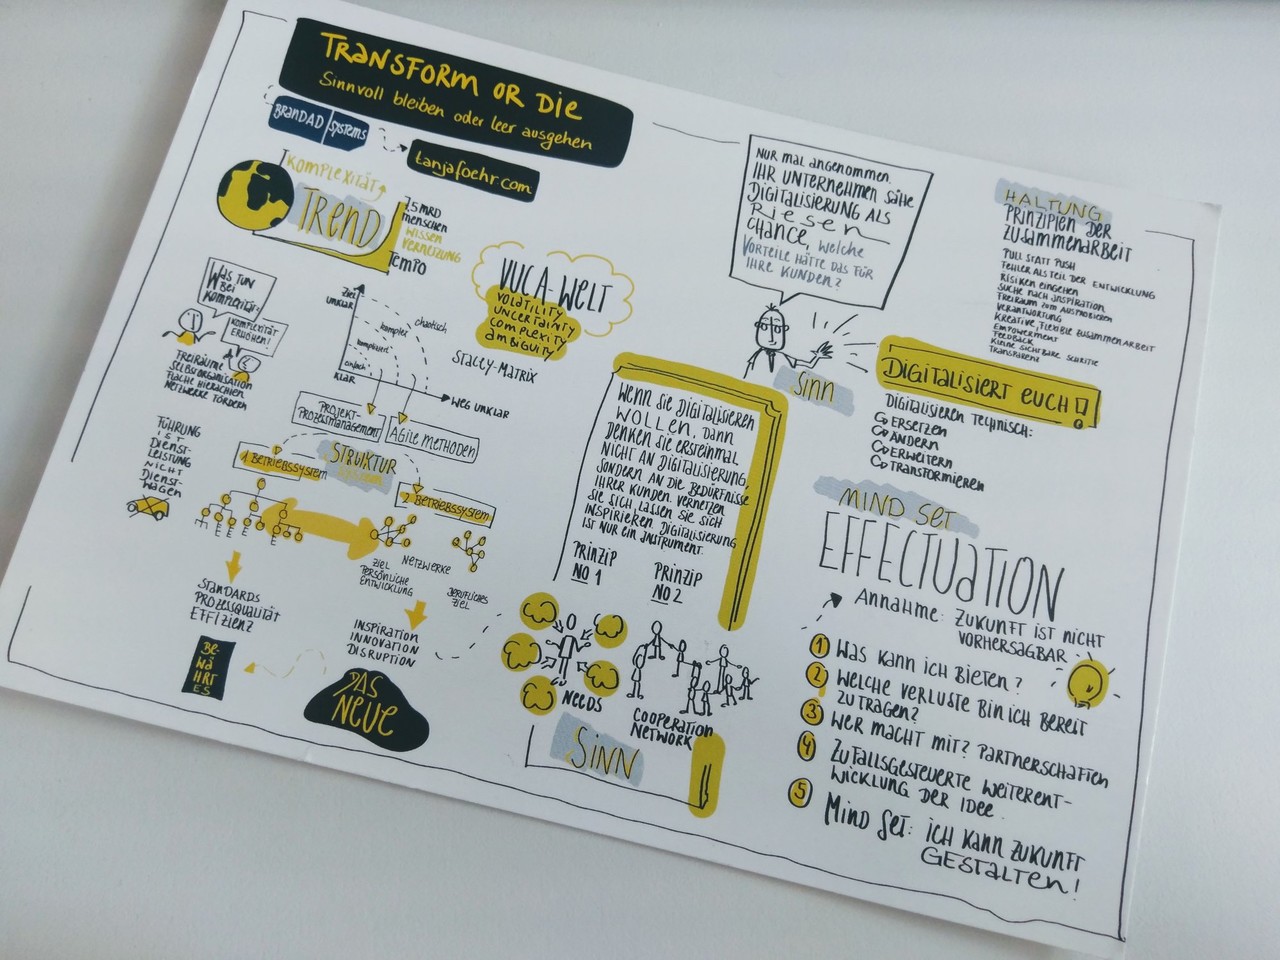 TRANSFORM OR DIE
Sinnvoll bleiben oder leer ausgehen
BRANDAD SYSTEMS
tanjafoehr.com
KOMPLEXITÄT
TREND
7,5 MRD
MENSCHEN
WISSEN
VERNETZUNG
TEMPO
WAS TUN
BEI
KOMPLEXITÄT?
KOMPLEXITÄT
ERHÖHEN!
FREIRÄUME
SELBSTORGANISATION
FLACHE HIERARCHIEN
NETZWERKE FÖRDERN
ZIEL
UNKLAR
chaotisch
komplex
kompliziert
einfach
KLAR
WEG UNKLAR
STACEY-MATRIX
VUCA-WELT
VOLATILITY
UNCERTAINTY
COMPLEXITY
AMBIGUITY
PROJEKT-
PROZESSMANAGEMENT
AGILE METHODEN
STRUKTUR
FÜHRUNG
IST
DIENST-
LEISTUNG
NICHT
DIENST-
WAGEN
1 BETRIEBSSYSTEM
2 BETRIEBSSYSTEM
E
E
E
ZIEL
PERSÖNLICHE
ENTWICKLUNG
NETZWERKE
BERUFLICHES
ZIEL
STANDARDS
PROZESSQUALITÄT
EFFIZIENZ
BE-
WÄ
HRT
ES
INSPIRATION
INNOVATION
DISRUPTION
DAS
NEUE
NUR MAL ANGENOMMEN,
IHR UNTERNEHMEN SÄHE
DIGITALISIERUNG ALS
RIESEN
CHANCE, WELCHE
VORTEILE HÄTTE DAS FÜR
IHRE KUNDEN?
SINN
WENN SIE DIGITALISIEREN
WOLLEN, DANN
DENKEN SIE ERSTEINMAL
NICHT AN DIGITALISIERUNG,
SONDERN AN DIE BEDÜRFNISSE
IHRER KUNDEN. VERNETZEN
SIE SICH, LASSEN SIE SICH
INSPIRIEREN. DIGITALISIERUNG
IST NUR EIN INSTRUMENT.
PRINZIP
NO 1
PRINZIP
NO 2
NEEDS
COOPERATION
NETWORK
SINN
HALTUNG
PRINZIPIEN DER
ZUSAMMENARBEIT
PULL STATT PUSH
FEHLER ALS TEIL DER ENTWICKLUNG
RISIKEN EINGEHEN
SUCHE NACH INSPIRATION
FREIRAUM ZUM AUSPROBIEREN
VERANTWORTUNG
KREATIVE, FLEXIBLE ZUSAMMENARBEIT
EMPOWERMENT
FEEDBACK
KLEINE SICHTBARE SCHRITTE
TRANSPARENT
DIGITALISIERT EUCH
DIGITALISIEREN TECHNISCH:
ERSETZEN
ÄNDERN
ERWEITERN
TRANSFORMIEREN
MIND SET
EFFECTUATION
ANNAHME: ZUKUNFT IST NICHT
VORHERSAGBAR
1 WAS KANN ICH BIETEN?
2 WELCHE VERLUSTE BIN ICH BEREIT
ZU TRAGEN?
3 WER MACHT MIT? PARTNERSCHAFTEN
4 ZUFALLSGESTEUERTE WEITERENT-
WICKLUNG DER IDEE
5 MIND SET: ICH KANN ZUKUNFT
GESTALTEN!